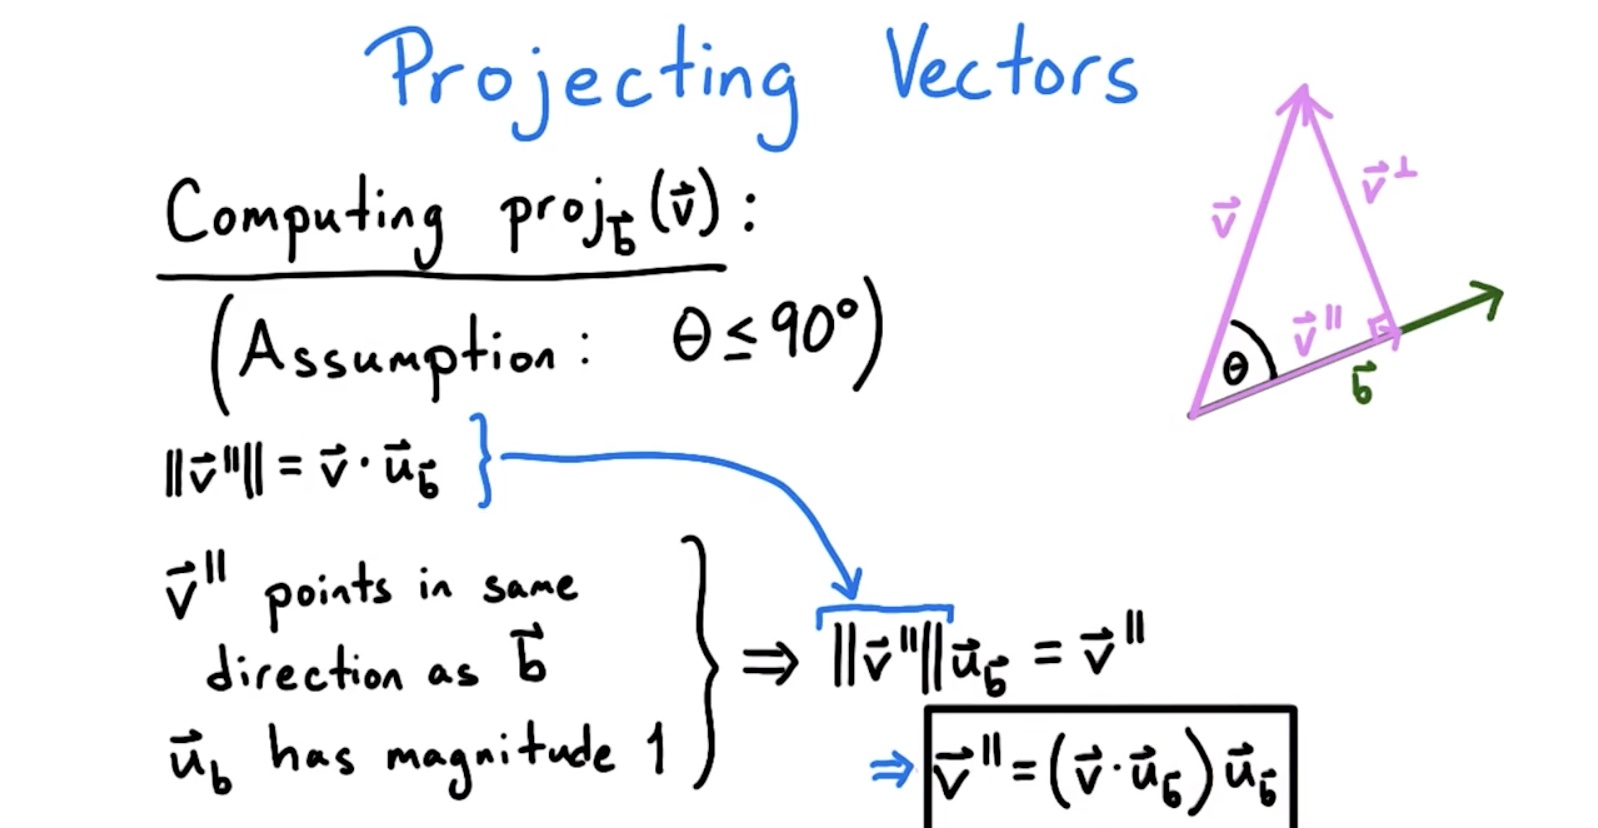 Projecting Vectors
Computing proj_b⃗(v⃗):
(Assumption: θ ≤ 90°)
‖v⃗^∥‖ = v⃗ · u⃗_b⃗ }
v⃗^∥ points in same
direction as b⃗
u⃗_b has magnitude 1
} ⇒ ‖v⃗^∥‖ u⃗_b⃗ = v⃗^∥
⇒ v⃗^∥ = (v⃗ · u⃗_b⃗) u⃗_b⃗
v⃗
v⃗^⊥
v⃗^∥
θ
b⃗